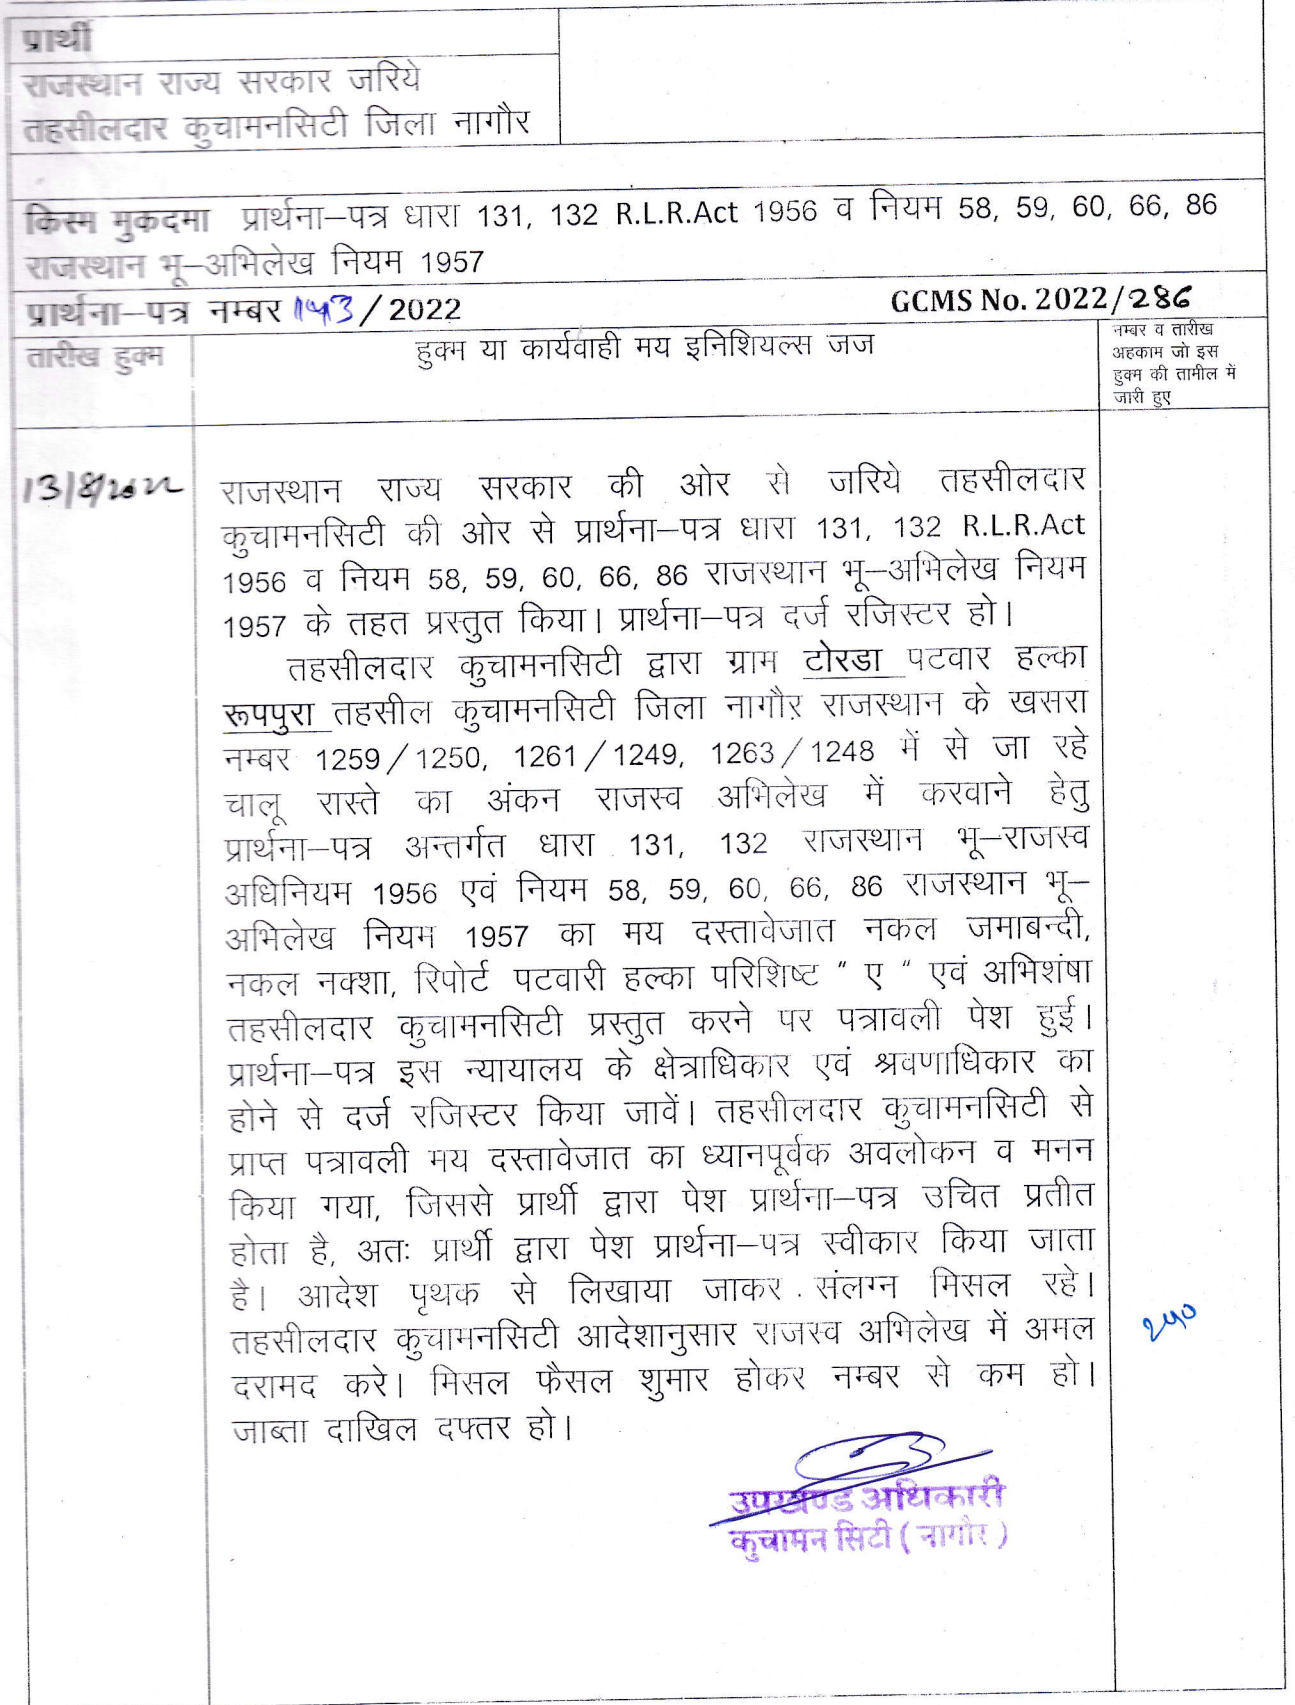 प्रार्थी
राजस्थान राज्य सरकार जरिये
तहसीलदार कुचामनसिटी जिला नागौर
किस्म मुकदमा प्रार्थना–पत्र धारा 131, 132 R.L.R.Act 1956 व नियम 58, 59, 60, 66, 86
राजस्थान भू–अभिलेख नियम 1957
प्रार्थना–पत्र नम्बर 143/2022 GCMS No. 2022/286
तारीख हुक्म
हुक्म या कार्यवाही मय इनिशियल्स जज
नम्बर व तारीख
अहकाम जो इस
हुक्म की तामील में
जारी हुए
13/8/2022
राजस्थान राज्य सरकार की ओर से जरिये तहसीलदार
कुचामनसिटी की ओर से प्रार्थना–पत्र धारा 131, 132 R.L.R.Act
1956 व नियम 58, 59, 60, 66, 86 राजस्थान भू–अभिलेख नियम
1957 के तहत प्रस्तुत किया। प्रार्थना–पत्र दर्ज रजिस्टर हो।
तहसीलदार कुचामनसिटी द्वारा ग्राम टोरडा पटवार हल्का
रूपपुरा तहसील कुचामनसिटी जिला नागौर राजस्थान के खसरा
नम्बर 1259/1250, 1261/1249, 1263/1248 में से जा रहे
चालू रास्ते का अंकन राजस्व अभिलेख में करवाने हेतु
प्रार्थना–पत्र अन्तर्गत धारा 131, 132 राजस्थान भू–राजस्व
अधिनियम 1956 एवं नियम 58, 59, 60, 66, 86 राजस्थान भू–
अभिलेख नियम 1957 का मय दस्तावेजात नकल जमाबन्दी,
नकल नक्शा, रिपोर्ट पटवारी हल्का परिशिष्ट " ए " एवं अभिशंषा
तहसीलदार कुचामनसिटी प्रस्तुत करने पर पत्रावली पेश हुई।
प्रार्थना–पत्र इस न्यायालय के क्षेत्राधिकार एवं श्रवणाधिकार का
होने से दर्ज रजिस्टर किया जावें। तहसीलदार कुचामनसिटी से
प्राप्त पत्रावली मय दस्तावेजात का ध्यानपूर्वक अवलोकन व मनन
किया गया, जिससे प्रार्थी द्वारा पेश प्रार्थना–पत्र उचित प्रतीत
होता है, अतः प्रार्थी द्वारा पेश प्रार्थना–पत्र स्वीकार किया जाता
है। आदेश पृथक से लिखाया जाकर संलग्न मिसल रहे।
तहसीलदार कुचामनसिटी आदेशानुसार राजस्व अभिलेख में अमल
दरामद करे। मिसल फैसल शुमार होकर नम्बर से कम हो।
जाब्ता दाखिल दफ्तर हो।
उपखण्ड अधिकारी
कुचामन सिटी ( नागौर )